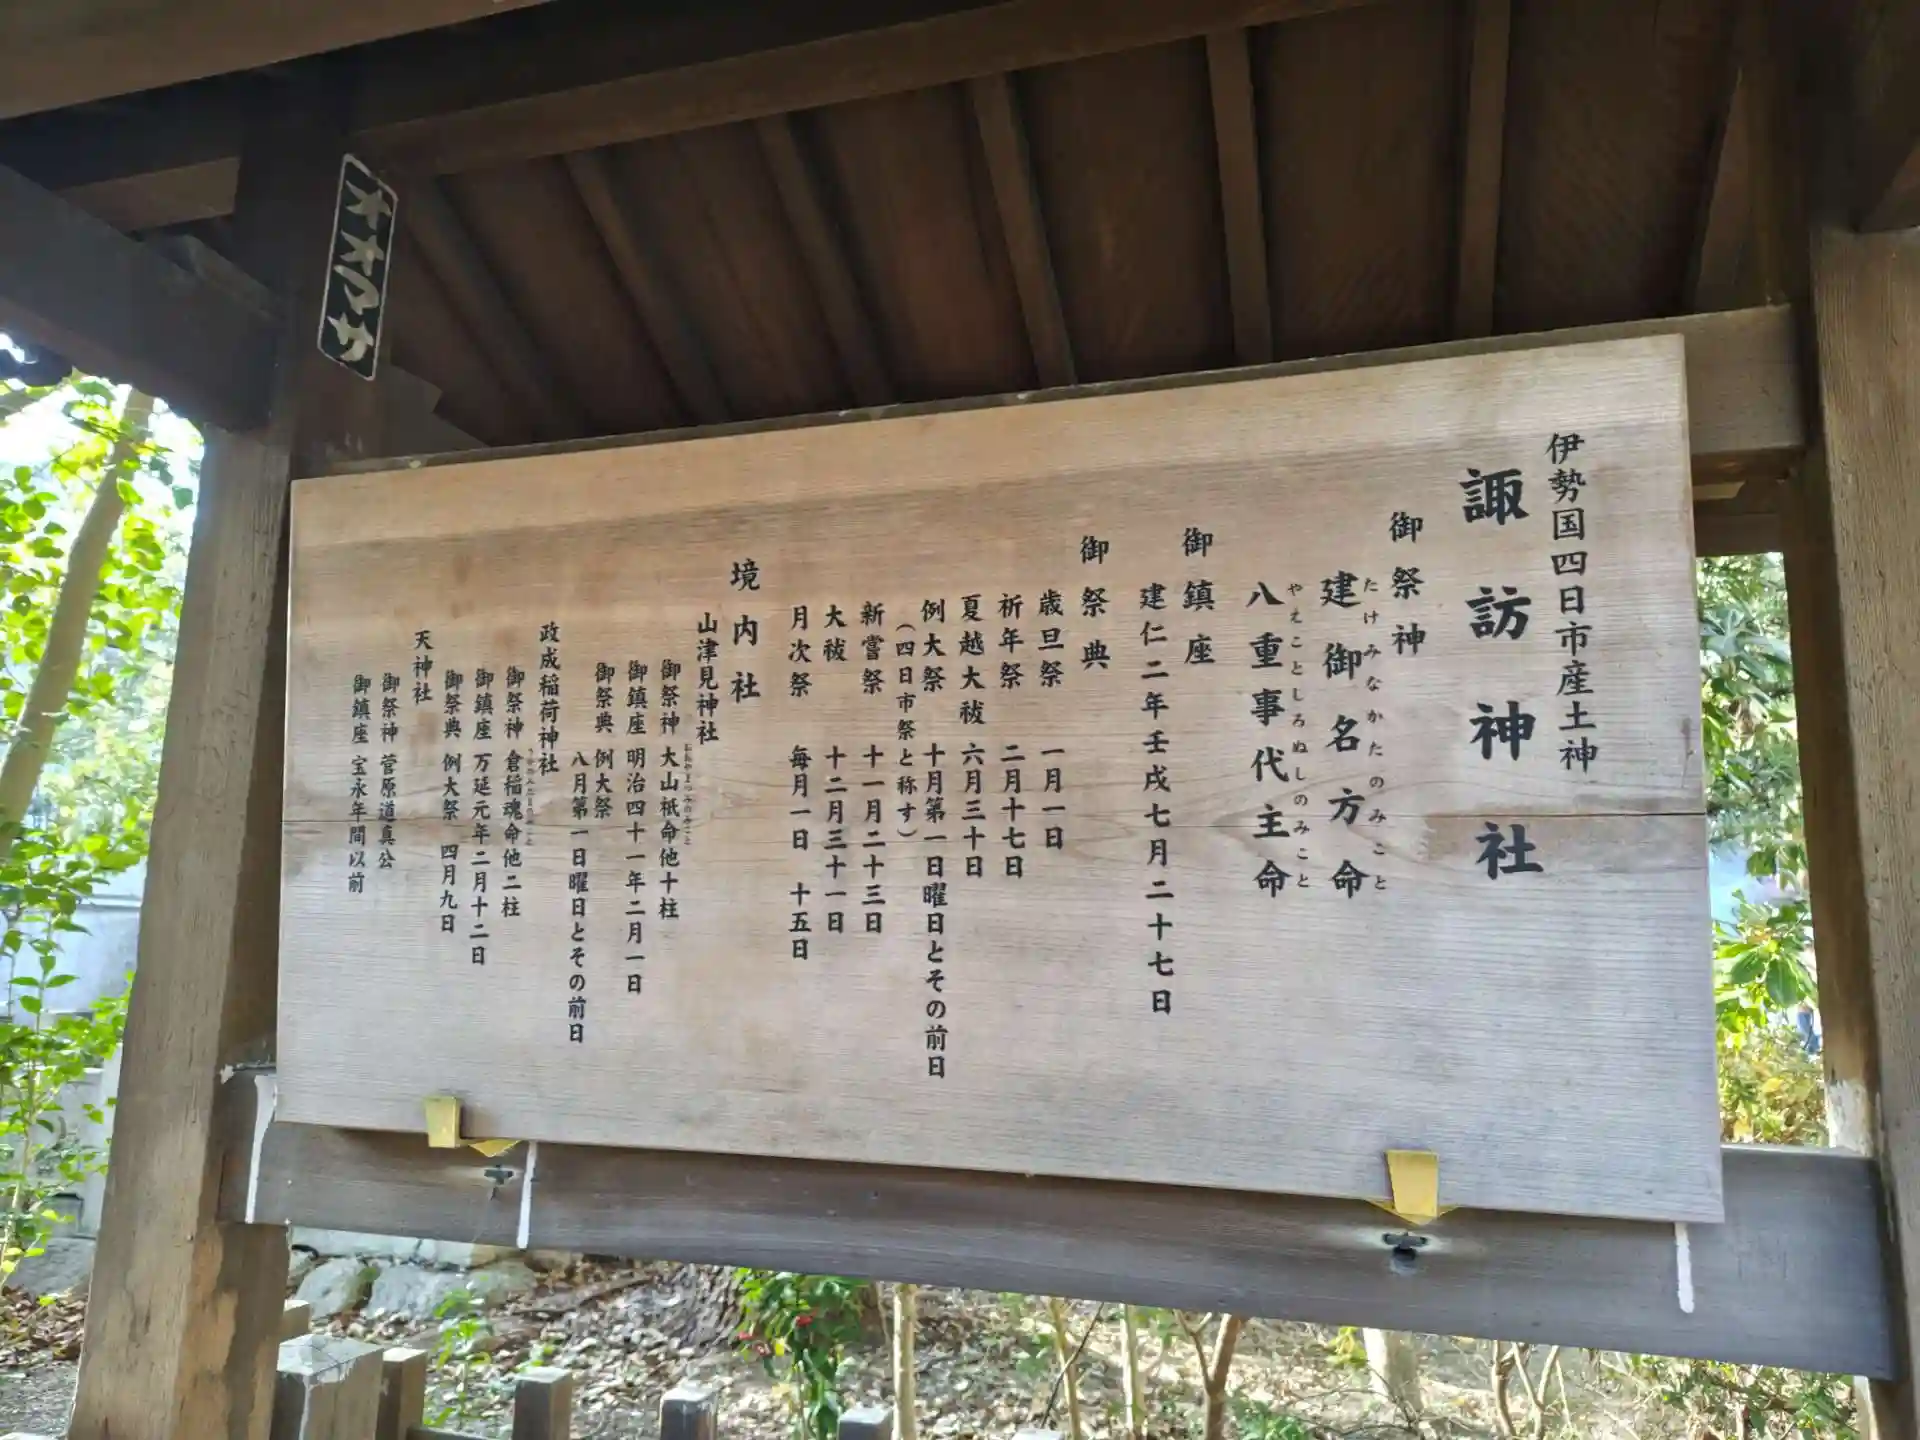 伊勢国四日市産土神
諏訪神社
御祭神
建御名方命
たけみなかたのみこと
八重事代主命
やえことしろぬしのみこと
御鎮座
建仁二年壬戌七月二十七日
御祭典
歳旦祭 一月一日
祈年祭 二月十七日
夏越大祓 六月三十日
例大祭 十月第一日曜日とその前日
(四日市祭と称す)
新嘗祭 十一月二十三日
大祓 十二月三十一日
月次祭 毎月一日 十五日
境内社
山津見神社
御祭神 大山祇命他十柱
おおやまつみのみこと
御鎮座 明治四十一年二月一日
御祭典 例大祭
八月第一日曜日とその前日
政成稲荷神社
御祭神 倉稲魂命他二柱
御鎮座 万延元年二月十二日
御祭典 例大祭 四月九日
天神社
御祭神 菅原道真公
御鎮座 宝永年間以前
オオマサ